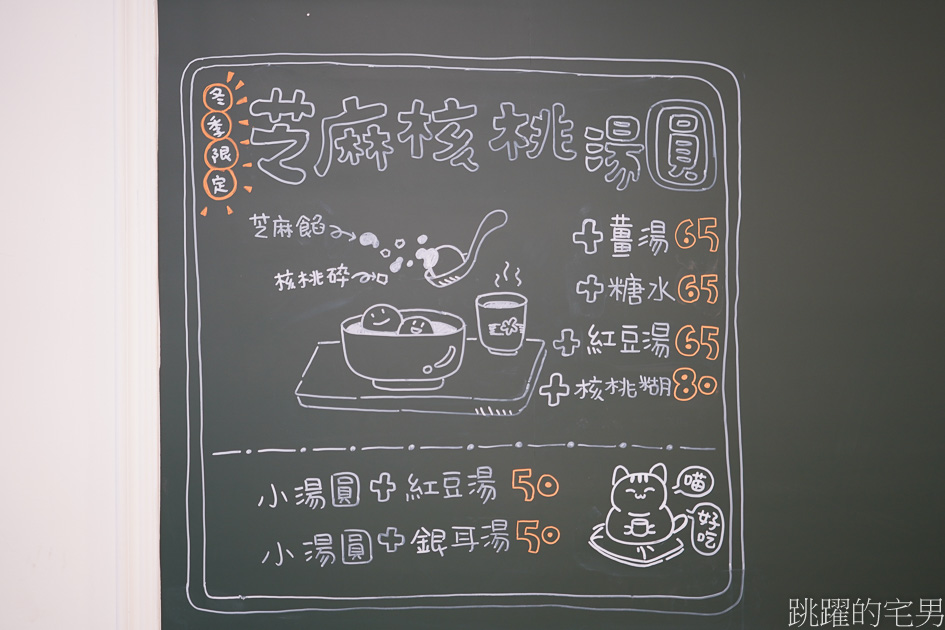 冬季限定
芝麻核桃湯圓
芝麻餡
核桃碎
+薑湯65
+糖水65
+紅豆湯65
+核桃糊80
小湯圓+紅豆湯 50
小湯圓+銀耳湯50
喵
好吃
跳躍的宅男